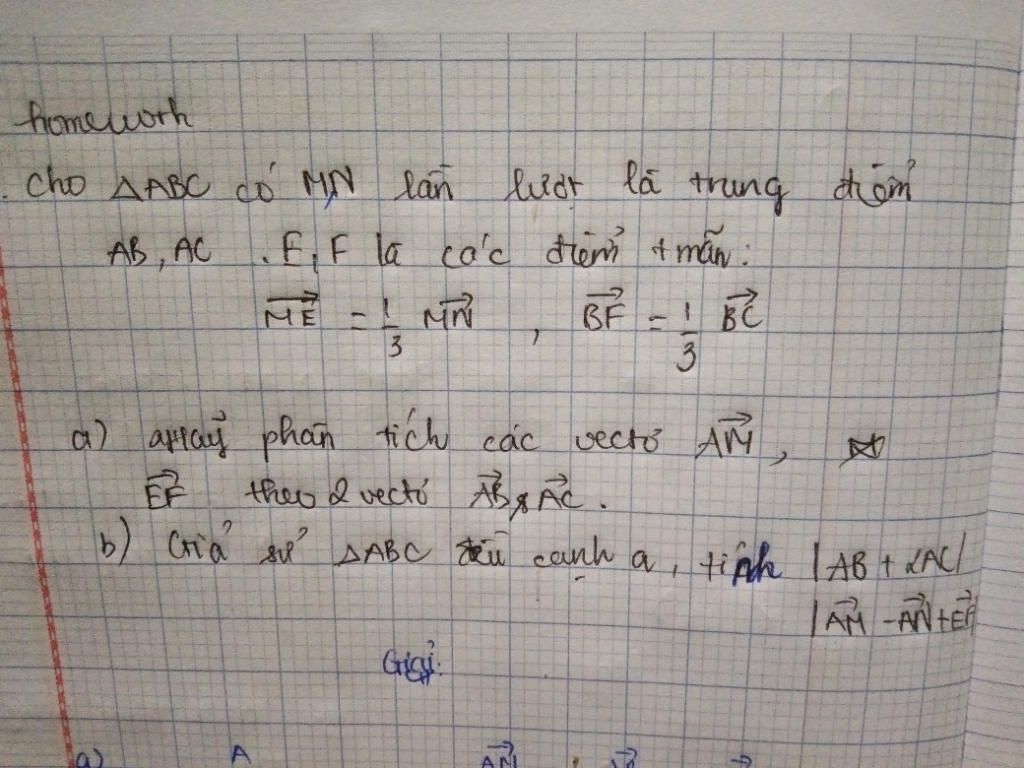 homework
. Cho △ABC có M,N lần lượt là trung điểm
AB, AC . E, F là các điểm t mãn:
$\overrightarrow{ME} = \frac{1}{3} \overrightarrow{MN}$ , $\overrightarrow{BF} = \frac{1}{3} \overrightarrow{BC}$
a) Hãy phân tích các vectơ $\overrightarrow{AM}$,
$\overrightarrow{EF}$ theo 2 vectơ $\overrightarrow{AB}$ & $\overrightarrow{AC}$.
b) Giả sử △ABC đều cạnh a, tính |AB + 2AC|
$|\overrightarrow{AM} - \overrightarrow{AN} + \overrightarrow{EF}|$
Giải:
a) A $\overrightarrow{AM}$